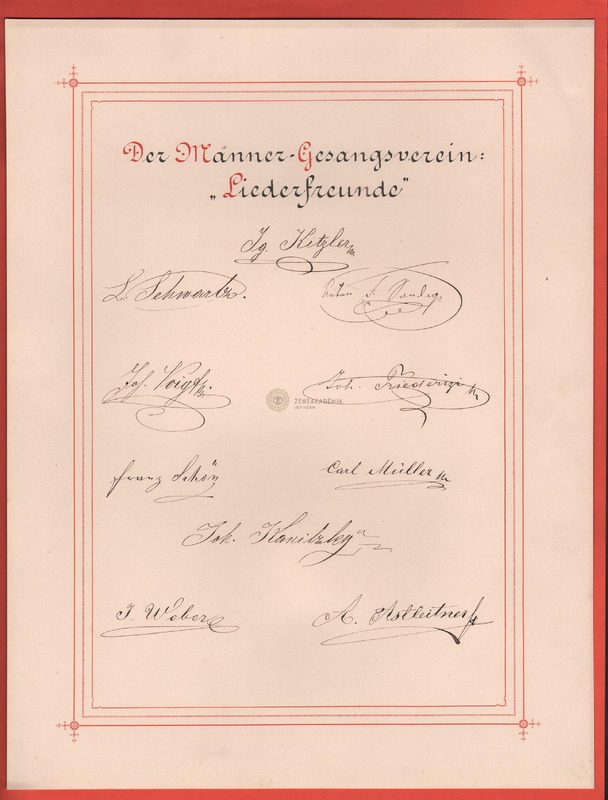 Der Männer-Gesangsverein:
„Liederfreunde“
Ig. Kitzler
L. Schwartz.
Anton F.
Jos. Voigt
Joh. Friederizi
ZENEAKADÉMIA
LISZT MÚZEUM
Franz Schön
Carl Müller
Joh.
J. Weber
A. Astleitner